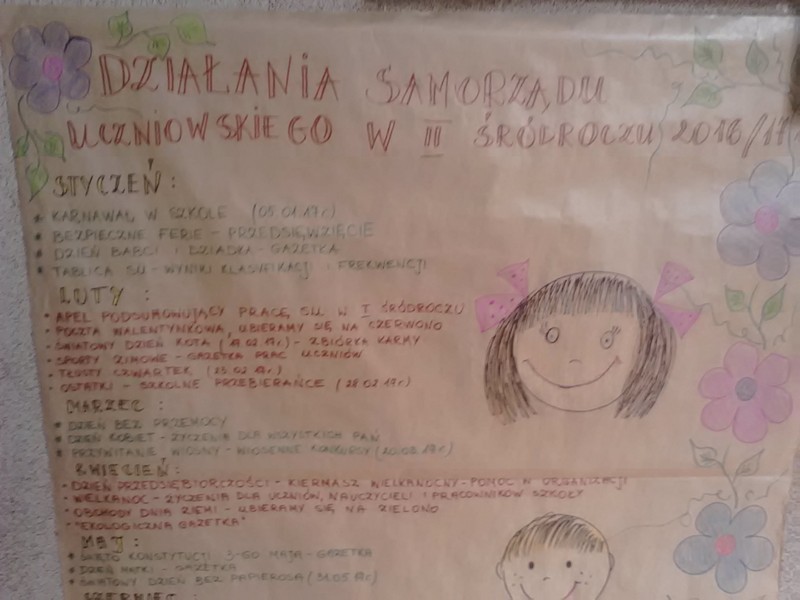 DZIAŁANIA SAMORZĄDU
UCZNIOWSKIEGO W II ŚRÓDROCZU 2016/17
STYCZEŃ:
* KARNAWAŁ W SZKOLE (05.01.17r)
* BEZPIECZNE FERIE - PRZEDSIĘWZIĘCIE
* DZIEŃ BABCI I DZIADKA - GAZETKA
* TABLICA SU - WYNIKI KLASYFIKACJI I FREKWENCJI
LUTY:
• APEL PODSUMOWUJĄCY PRACĘ SU W I ŚRÓDROCZU
• POCZTA WALENTYNKOWA, UBIERAMY SIĘ NA CZERWONO
• ŚWIATOWY DZIEŃ KOTA (17.02.17r.) - ZBIÓRKA KARMY
• SPORTY ZIMOWE - GAZETKA PRAC UCZNIÓW
• TŁUSTY CZWARTEK (23.02.17r.)
• OSTATKI - SZKOLNE PRZEBIERAŃCE (28.02.17r)
MARZEC:
* DZIEŃ BEZ PRZEMOCY
* DZIEŃ KOBIET - ŻYCZENIA DLA WSZYSTKICH PAŃ
* PRZYWITANIE WIOSNY - WIOSENNE KONKURSY (20.03.17r)
KWIECIEŃ:
• DZIEŃ PRZEDSIĘBIORCZOŚCI - KIERMASZ WIELKANOCNY - POMOC W ORGANIZACJI
• WIELKANOC - ŻYCZENIA DLA UCZNIÓW, NAUCZYCIELI I PRACOWNIKÓW SZKOŁY
• OBCHODY DNIA ZIEMI - UBIERAMY SIĘ NA ZIELONO
• "EKOLOGICZNA GAZETKA"
MAJ:
* ŚWIĘTO KONSTYTUCJI 3-GO MAJA - GAZETKA
* DZIEŃ MATKI - GAZETKA
* ŚWIATOWY DZIEŃ BEZ PAPIEROSA (31.05.17r)
CZERWIEC: